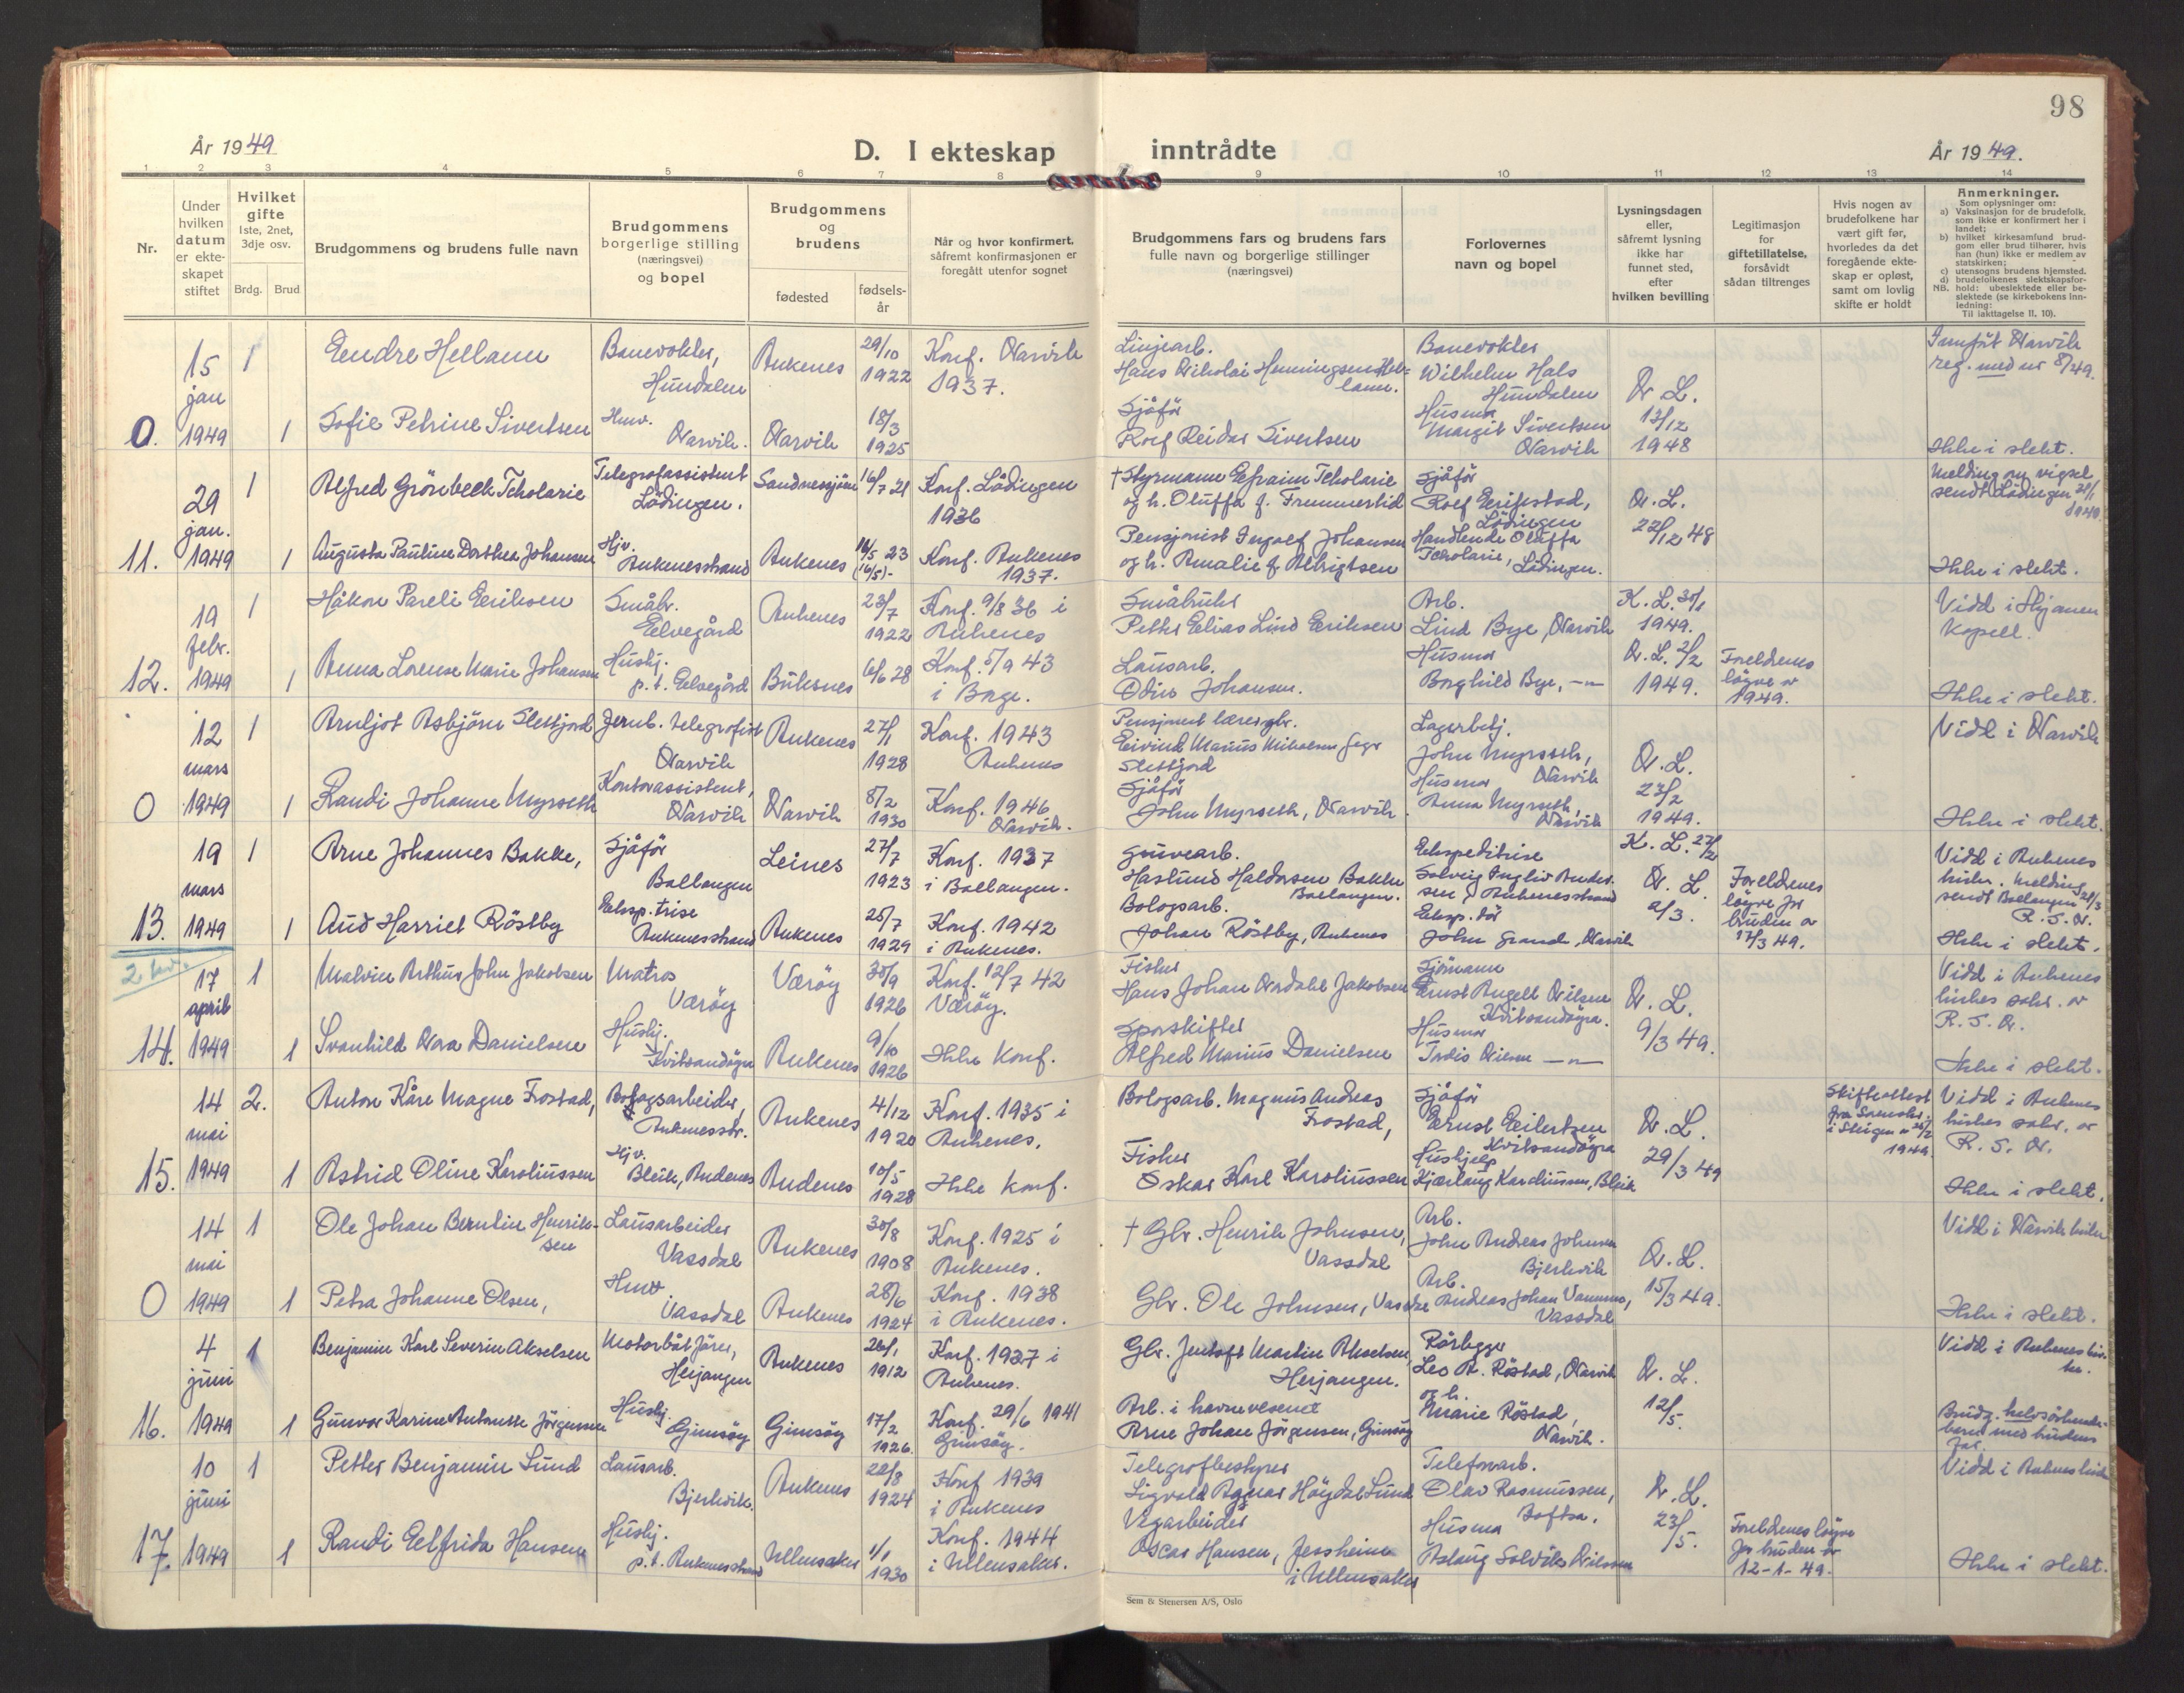 98
År 1949
D. I ekteskap inntrådte
År 1949.
1 2 3 4 5 6 7 8 9 10 11 12 13 14
Nr.
Under hvilken datum er ekteskapet stiftet
Hvilket gifte
1ste, 2net, 3dje osv.
Brdg. Brud
Brudgommens og brudens fulle navn
Brudgommens borgerlige stilling (næringsvei) og bopel
Brudgommens og brudens
fødested
fødselsår
Når og hvor konfirmert, såfremt konfirmasjonen er foregått utenfor sognet
Brudgommens fars og brudens fars fulle navn og borgerlige stillinger (næringsvei)
Forlovernes navn og bopel
Lysningsdagen eller, såfremt lysning ikke har funnet sted, efter hvilken bevilling
Legitimasjon for giftetillatelse, forsåvidt sådan tiltrenges
Hvis nogen av brudefolkene har vært gift før, hvorledes da det foregående ekteskap er opløst, samt om lovlig skifte er holdt
Anmerkninger.
Som oplysninger om:
a) Vaksinasjon for de brudefolk, som ikke er konfirmert her i landet;
b) hvilket kirkesamfund brudgom eller brud tilhører, hvis han (hun) ikke er medlem av statskirken;
c) utensogns brudens hjemsted.
d) brudefolkenes slektskapsforhold: ubeslektede eller beslektede (se kirkebokens innledning:
NB.
Til iakttagelse II, 10).
0. 15 jan 1949
1 Eendre Hellann
Banevokter, Hundalen
Ankenes 29/10 1922
Konf. Narvik 1937.
Linjearb.
Hans Nikolai Henningsen Hellann.
Banevokter
Wilhelm Hals
Hundalen
N. L. 13/12 1948
Innført Narvik reg. med nr 8/49.
1 Sofie Petrine Sivertsen
Hmv. Narvik.
Narvik 18/3 1925
Sjåfør
Rolf Reidar Sivertsen
Husmor
Margit Sivertsen
Narvik
Ikke i slekt.
11. 29 jan. 1949
1 Alfred Grönbech Tcholarie
Telegrafassistent
Lödingen.
Sandnessjöen 16/7 21
Konf. Lödingen 1936
† Styrmann Efraim Tcholarie
og h. Oluffa f.
Sjåför
Rolf
Lödingen
N. L. 22/12 48
Melding om vigsel sendt Lödingen
1 Augusta Pauline Dorthea Johansen
Hjv.
Ankenesstrand
Ankenes 16/5 23
(16/5)-
Konf. Ankenes 1937.
Pensjonist Ingolf Johansen
og h. Amalie f. Albrigtsen
Handlende Oluffa
Tcholarie, Lödingen.
Ikke i slekt.
12. 19 febr. 1949
1 Håkon Pareli Eriksen
Småbr.
Elvegård
Ankenes 23/7 1922
Konf. 9/8 36 i Ankenes
Småbruker
Petter Elias Lind Eriksen
Arb.
Lind Bye, Narvik
K. L. 30/1 1949.
Vidd i Skjomen Kapell.
1 Anna Lorense Marie Johansen
Hushj.
p.t. Elvegård
Buksnes 6/6 28
Konf. 5/9 43 i Borge.
Lausarb.
Odin Johansen.
Husmor
Borghild Bye, —"—
N. L. 2/2 1949.
Foreldrenes løyve av 1949.
Ikke i slekt.
0 12 mars 1949
1 Arnljot Asbjörn Slettjord
Jernb. telegrafist
Narvik
Ankenes 27/1 1928
Konf. 1943 Ankenes
Pensjonert lærer, gbr.
Eivind Marius Mikalsen Jegr Slettjord
Lagerbetj.
John Myrseth,
Narvik
N. L. 23/2 1949.
Vidd i Narvik
1 Randi Johanne Myrseth
Kontorassistent,
Narvik
Narvik 8/2 1930
Konf. 1946 Narvik.
Sjåför
John Myrseth, Narvik
Husmor
Anna Myrseth,
Narvik
Ikke i slekt.
13. 19 mars 1949
1 Arne Johannes Bakke,
Sjåför
Ballangen
Leines 27/7 1923
Konf. 1937 i Ballangen.
Gruvearb.
Haslund Haldorsen Bakke
Ballangen.
Ekspeditrise
Solveig Andersen, Ankenesstrand
K. L. 27/2
N. L. 2/3.
Foreldrenes løyve for bruden av 17/3 49.
Vidd i Ankenes kirke. Melding sendt Ballangen 21/3 R. S. N.
1 Aud Harriet Röstby
Eksp.trise
Ankenesstrand
Ankenes 25/7 1929
Konf. 1942 i Ankenes.
Bologsarb.
Johan Röstby, Ankenes
Eksp.tör
John Grand, Narvik
Ikke i slekt.
2 kv.
14. 17 april 1949
1 Malvin Arthur John Jakobsen
Matros
Værøy
Værøy 30/9 1926
Konf. 12/7 42 Værøy.
Fisker
Hans Johan Ordahl Jakobsen
Sjömann
Ernst Angell Nilsen
Kvitsandøyra.
N. L. 9/3 49.
Vidd i Ankenes kirkes sakr. av R. S. N.
1 Svanhild Nora Danielsen
Hushj.
Kvitsandøyra
Ankenes 9/10 1926
Ikke Konf.
Sporskifter
Alfred Marius Danielsen
Husmor
Tordis Nilsen —"—
Ikke i slekt.
15. 14 mai 1949
2. Anton Kåre Magne Frostad,
Bologsarbeider,
Ankenesstr.
Ankenes 4/12 1920
Konf. 1935 i Ankenes.
Bologsarb. Magnus Andreas Frostad,
Sjåför
Ernst Eilertsen
Kvitsandøyra
N. L. 29/3 49
Skifteattest fra Sorenskr. i Steigen av 1949.
Vidd i Ankenes kirkes sakr. av R. S. N.
1 Astrid Oline Karoliussen
Hjv.
Bleik, Andenes
Andenes 10/5 1928
Ikke konf.
Fisker
Oskar Karl Karoliussen
Hushjelp
Kjærlaug Karoliussen, Bleik
Ikke i slekt.
0 14 mai 1949
1 Ole Johan Berntin Henriksen
Lausarbeider
Vassdal
Ankenes 30/8 1908
Konf. 1925 i Ankenes.
† Gbr. Henrik Johnsen,
Vassdal
Arb.
John Andreas Johnsen
Bjerkvik
N. L. 15/3 49.
Vidd i Narvik kirke
1 Petra Johanne Olsen,
Hmv
Vassdal
Ankenes 28/6 1924
Konf. 1938 i Ankenes.
Gbr. Ole Johnsen, Vassdal
Arb.
Andreas Johan
Vassdal
Ikke i slekt.
16. 4 juni 1949
1 Benjamin Karl Severin Akselsen
Motorbåtförer,
Herjangen
Ankenes 26/1 1912
Konf. 1927 i Ankenes.
Gbr. Jentoft Martin Akselsen,
Herjangen.
Rörlegger
Leo A. Röstad, Narvik
og h.
N. L. 12/5.
Vidd i Ankenes kirke.
1 Gunvor Karine Antonette Jörgensen
Hushj.
Gimsöy
Gimsöy 17/2 1926.
Konf. 29/6 1941 Gimsöy.
Arb. i havnevesenet
Arne Johan Jörgensen, Gimsöy
Marie Röstad,
Narvik.
Brudg. halvsöskendebarn med brudens far.
17. 10 juni 1949
1 Petter Benjamin Lund
Lausarb.
Bjerkvik.
Ankenes 22/8 1924
Konf 1939 i Ankenes
Telegrafbestyrer
Sigvald Ragnar Höydal Lund
Telefonarb.
Olav Rasmussen,
N. L. 23/5.
Vidd i Ankenes kirke
1 Randi Elfrida Hansen
Hushj.
p.t. Ankenesstrand
Ullensaker 1/1 1930
Konf. 1944 i Ullensaker.
Vegarbeider
Oscar Hansen, Jessheim
i Ullensaker
Husmor
Aslaug Solvik Nilssen
Foreldrenes løyve for bruden av 12-1-49.
Ikke i slekt.
Sem & Stenersen A/S, Oslo